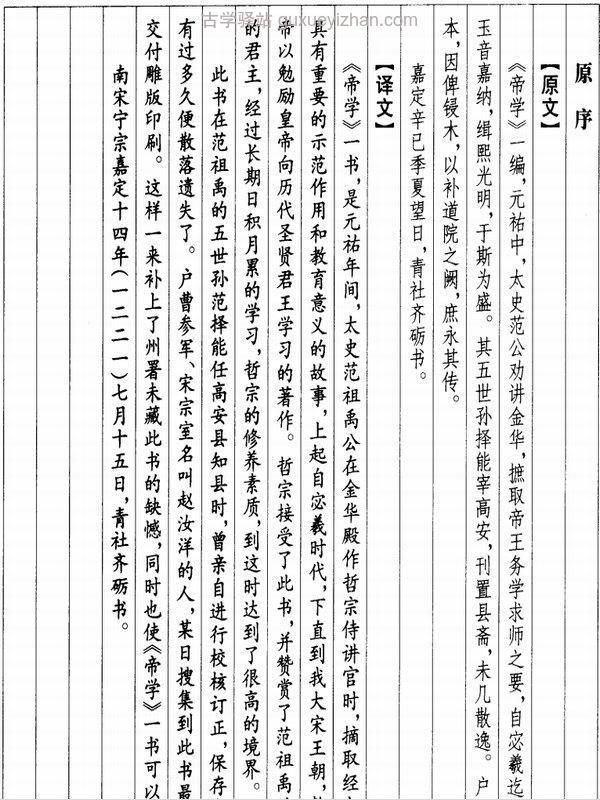 古学驿站 guxueyizhan.com
原序
【原文】
《帝学》一编，元祐中，太史范公劝讲金华，摭取帝王务学求师之要，自宓羲迄
玉音嘉纳，缉熙光明，于斯为盛。其五世孙择能宰高安，刊置县斋，未几散逸。户
本，因俾锓木，以补道院之阙，庶永其传。
嘉定辛巳季夏望日，青社齐砺书。
【译文】
《帝学》一书，是元祐年间，太史范祖禹公在金华殿作哲宗侍讲官时，摘取经
具有重要的示范作用和教育意义的故事，上起自宓羲时代，下直到我大宋王朝，
帝以勉励皇帝向历代圣贤君王学习的著作。哲宗接受了此书，并赞赏了范祖禹
的君主，经过长期日积月累的学习，哲宗的修养素质，到这时达到了很高的境界。
此书在范祖禹的五世孙范择能任高安县知县时，曾亲自进行校核订正，保存
有过多久便散落遗失了。户曹参军、宋宗室名叫赵汝洋的人，某日搜集到此书最
交付雕版印刷。这样一来补上了州署未藏此书的缺憾，同时也使《帝学》一书可以
南宋宁宗嘉定十四年（一二二一）七月十五日，青社齐砺书。